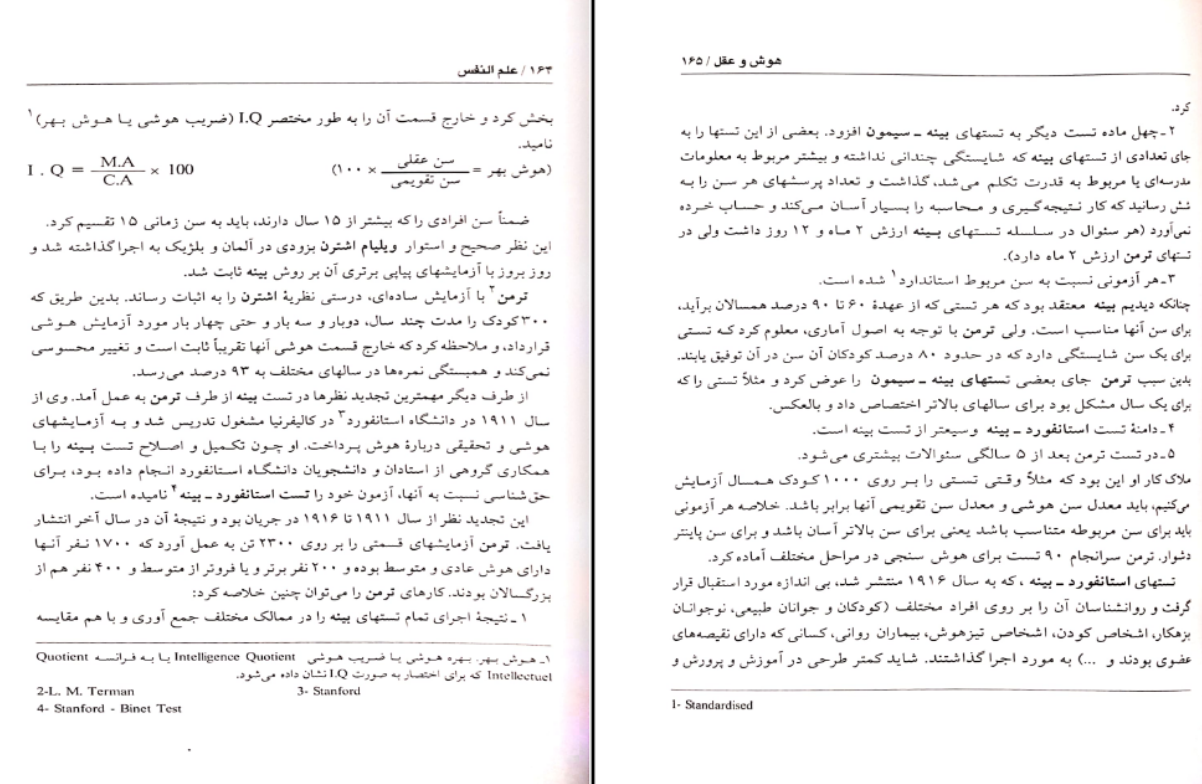 ۱۶۴ / علم النفس
بخش کرد و خارج قسمت آن را به طور مختصر I.Q (ضریب هوشی یا هوش بهر)۱
نامید.
(هوش بهر = سن عقلی / سن تقویمی × ۱۰۰) I . Q = M.A / C.A × 100
ضمناً سن افرادی را که بیشتر از ۱۵ سال دارند، باید به سن زمانی ۱۵ تقسیم کرد.
این نظر صحیح و استوار ویلیام اشترن بزودی در آلمان و بلژیک به اجرا گذاشته شد و
روز بروز با آزمایشهای پیاپی برتری آن بر روش بینه ثابت شد.
ترمن۲ با آزمایش ساده‌ای، درستی نظریهٔ اشترن را به اثبات رساند. بدین طریق که
۳۰۰ کودک را مدت چند سال، دوبار و سه بار و حتی چهار بار مورد آزمایش هوشی
قرارداد، و ملاحظه کرد که خارج قسمت هوشی آنها تقریباً ثابت است و تغییر محسوسی
نمی‌کند و همبستگی نمره‌ها در سالهای مختلف به ۹۳ درصد می‌رسد.
از طرف دیگر مهمترین تجدید نظرها در تست بینه از طرف ترمن به عمل آمد. وی از
سال ۱۹۱۱ در دانشگاه استانفورد۳ در کالیفرنیا مشغول تدریس شد و به آزمایشهای
هوشی و تحقیقی دربارهٔ هوش پرداخت. او چون تکمیل و اصلاح تست بینه را با
همکاری گروهی از استادان و دانشجویان دانشگاه استانفورد انجام داده بود، برای
حق‌شناسی نسبت به آنها، آزمون خود را تست استانفورد ـ بینه۴ نامیده است.
این تجدید نظر از سال ۱۹۱۱ تا ۱۹۱۶ در جریان بود و نتیجهٔ آن در سال آخر انتشار
یافت. ترمن آزمایشهای قسمتی را بر روی ۲۳۰۰ تن به عمل آورد که ۱۷۰۰ نفر آنها
دارای هوش عادی و متوسط بوده و ۲۰۰ نفر برتر و یا فروتر از متوسط و ۴۰۰ نفر هم از
بزرگسالان بودند. کارهای ترمن را می‌توان چنین خلاصه کرد:
۱ ـ نتیجهٔ اجرای تمام تستهای بینه را در ممالک مختلف جمع آوری و با هم مقایسه
۱ـ هوش بهر، بهره هوشی یا ضریب هوشی Intelligence Quotient یا به فرانسه Quotient
Intellectuel که برای اختصار به صورت I.Q نشان داده می‌شود.
2-L. M. Terman 3- Stanford
4- Stanford - Binet Test
هوش و عقل / ۱۶۵
کرد.
۲ـ چهل ماده تست دیگر به تستهای بینه ـ سیمون افزود. بعضی از این تستها را به
جای تعدادی از تستهای بینه که شایستگی چندانی نداشته و بیشتر مربوط به معلومات
مدرسه‌ای یا مربوط به قدرت تکلم می‌شد، گذاشت و تعداد پرسشهای هر سن را به
شش رسانید که کار نتیجه‌گیری و محاسبه را بسیار آسان می‌کند و حساب خرده
نمی‌آورد (هر سئوال در سلسله تستهای بینه ارزش ۲ ماه و ۱۲ روز داشت ولی در
تستهای ترمن ارزش ۲ ماه دارد).
۳ـ هر آزمونی نسبت به سن مربوط استاندارد۱ شده است.
چنانکه دیدیم بینه معتقد بود که هر تستی که از عهدهٔ ۶۰ تا ۹۰ درصد همسالان برآید،
برای سن آنها مناسب است. ولی ترمن با توجه به اصول آماری، معلوم کرد که تستی
برای یک سن شایستگی دارد که در حدود ۸۰ درصد کودکان آن سن در آن توفیق یابند.
بدین سبب ترمن جای بعضی تستهای بینه ـ سیمون را عوض کرد و مثلاً تستی را که
برای یک سال مشکل بود برای سالهای بالاتر اختصاص داد و بالعکس.
۴ـ دامنهٔ تست استانفورد ـ بینه وسیعتر از تست بینه است.
۵ـ در تست ترمن بعد از ۵ سالگی سئوالات بیشتری می‌شود.
ملاک کار او این بود که مثلاً وقتی تستی را بر روی ۱۰۰۰ کودک همسال آزمایش
می‌کنیم، باید معدل سن هوشی و معدل سن تقویمی آنها برابر باشد. خلاصه هر آزمونی
باید برای سن مربوطه متناسب باشد یعنی برای سن بالاتر آسان باشد و برای سن پاینتر
دشوار. ترمن سرانجام ۹۰ تست برای هوش سنجی در مراحل مختلف آماده کرد.
تستهای استانفورد ـ بینه ، که به سال ۱۹۱۶ منتشر شد، بی اندازه مورد استقبال قرار
گرفت و روانشناسان آن را بر روی افراد مختلف (کودکان و جوانان طبیعی، نوجوانان
بزهکار، اشخاص کودن، اشخاص تیزهوش، بیماران روانی، کسانی که دارای نقیصه‌های
عضوی بودند و ...) به مورد اجرا گذاشتند. شاید کمتر طرحی در آموزش و پرورش و
1- Standardised